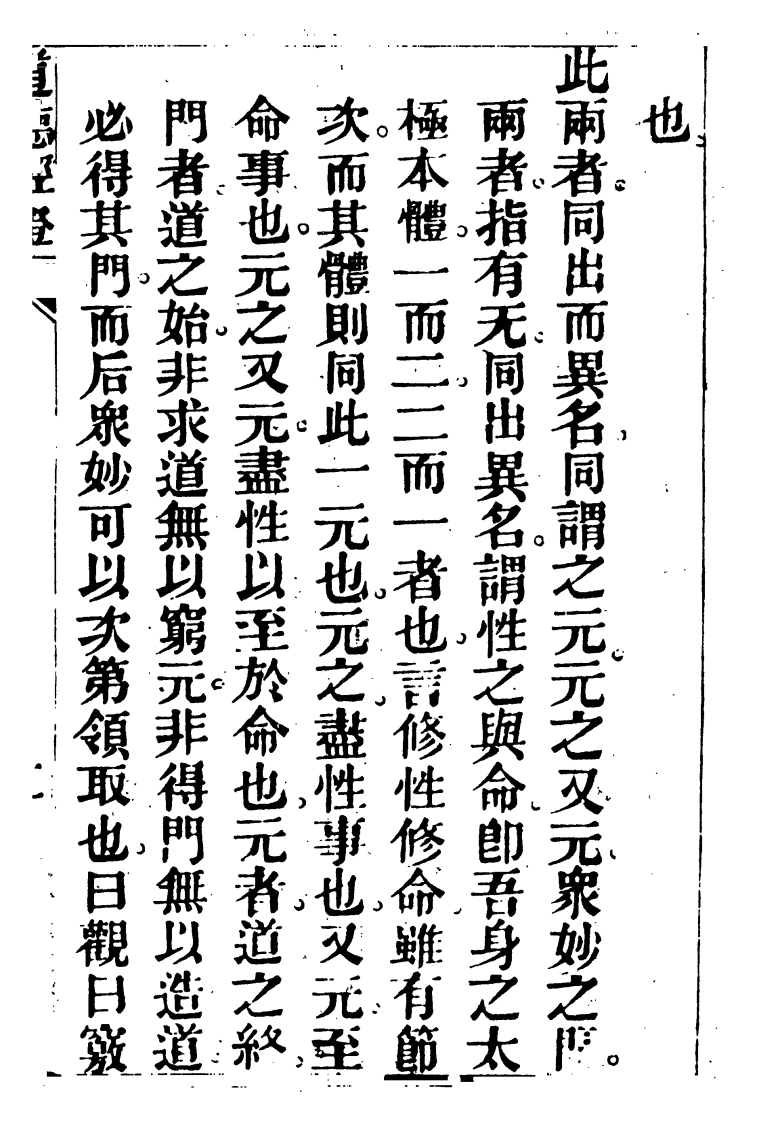 也
此兩者同出而異名同謂之元元之又元衆妙之門。
兩者指有无同出異名。謂性之與命卽吾身之太
極本體一而二二而一者也言修性修命雖有節
次。而其體則同此一元也元之盡性事也又元至
命事也。元之又元盡性以至於命也元者道之終
門者道之始非求道無以窮元非得門無以造道
必得其門而后衆妙可以次第領取也曰觀曰竅
道德經證